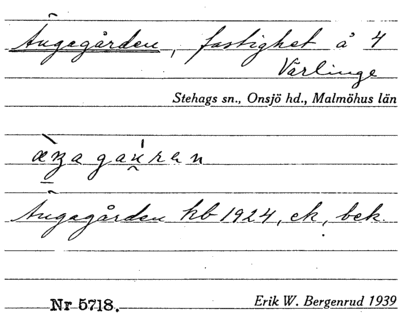 Ängagården, fastighet å 4
Varlinge
Stehags sn., Onsjö hd., Malmöhus län
Ängagården kb 1924, ek, bek.
Nr 5718. Erik W. Bergenrud 1939